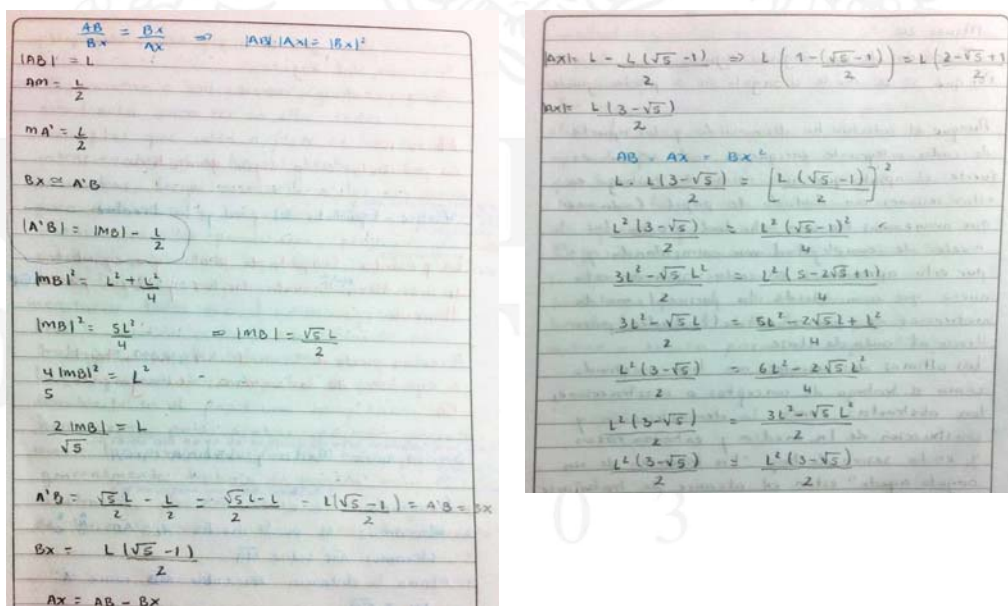 AB/BX = BX/AX ⇒ |AB|·|AX| = |BX|²
|AB| = L
AM = L/2
MA' = L/2
BX ≅ A'B
|A'B| = |MB| - L/2
|MB|² = L² + L²/4
|MB|² = 5L²/4 ⇒ |MB| = √5 L/2
4|MB|²/5 = L² -
2|MB|/√5 = L
A'B = √5 L/2 - L/2 = √5 L - L/2 - L(√5 - 1)/2 = A'B = BX
BX = L(√5 - 1)/2
AX = AB - BX
|AX| = L - L(√5 - 1)/2 ⇒ L(1 - (√5 - 1)/2) = L(2 - √5 + 1/2
|AX| = L(3 - √5)/2
AB · AX = BX²
L · L(3 - √5)/2 = [L·(√5 - 1)/2]²
L²(3 - √5)/2 = L²(√5 - 1)²/4
3L² - √5 L²/2 = L²(5 - 2√5 + 1)/4
3L² - √5 L/2 = 5L² - 2√5 L + L²/4
L²(3 - √5)/2 = 6L² - 2√5 L²/4
L²(3 - √5)/2 = 3L² - √5 L²/2
L²(3 - √5)/2 = L²(3 - √5)/2
03